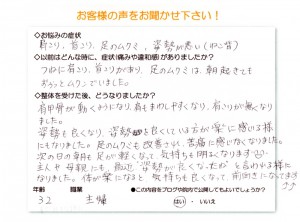 お客様の声をお聞かせ下さい！
◇お悩みの症状
肩こり、首こり、足のムクミ、姿勢が悪い(ねこ背)
◇以前はどんな時に、症状(痛みや違和感)がありましたか？
つねに肩こり、首こりがあり、足のムクミは、朝起きても
ずっとムクんでいました。
◇整体を受けた後、どうなりましたか？
肩甲骨が動くようになり、肩もまわしやすくなり、肩こりが無くなり
ました。
姿勢も良くなり、姿勢を良くしている方が楽に感じる様
にもなりました。足のムクミも改善され、苦痛に感じなくなりました。
次の日の朝も足が軽くなって、気持ちも明るくなります。
主人や母親にも、最近、姿勢が良くなったねと言われる様に
なりました。体が楽になると、気持ちも良くなって、前向きになってます
年齢 職業 ◆この内容をブログや院内で公開してもよいでしょうか？
32 主婦 はい ・ いいえ